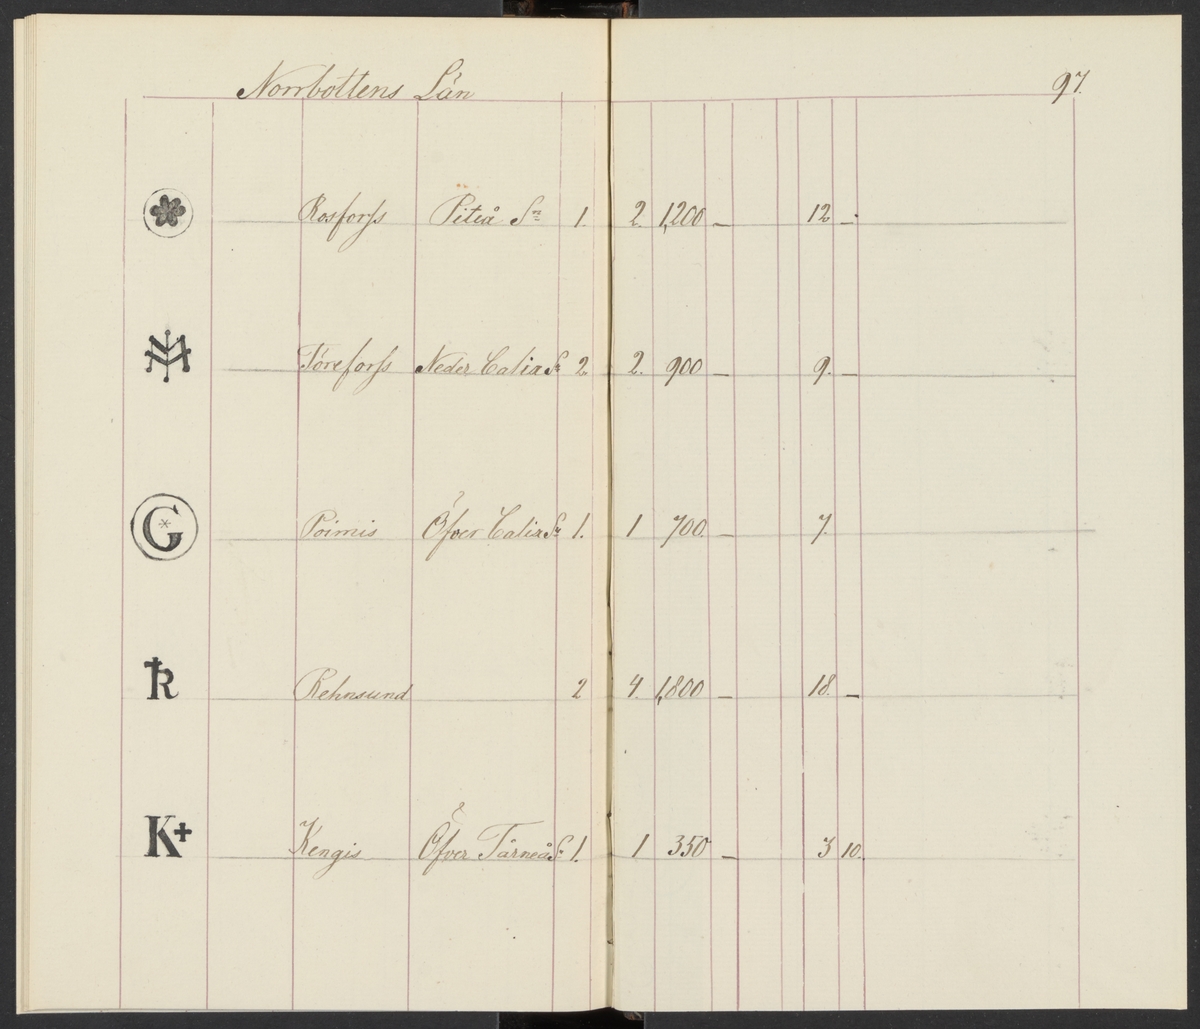 Norrbottens Län 97.
Rosforss Piteå Sn 1. 2. 1,200 — 12 —.
Töreforss Neder Calix Sn 2. 2. 900 — 9. —
G Poimis Öfver Calix Sn 1. 1 700. — 7.
R Rehnsund 2 4. 1,800 — 18. —
K+ Kengis Öfver Tårneå Sn 1. 1 350 — 3 10.